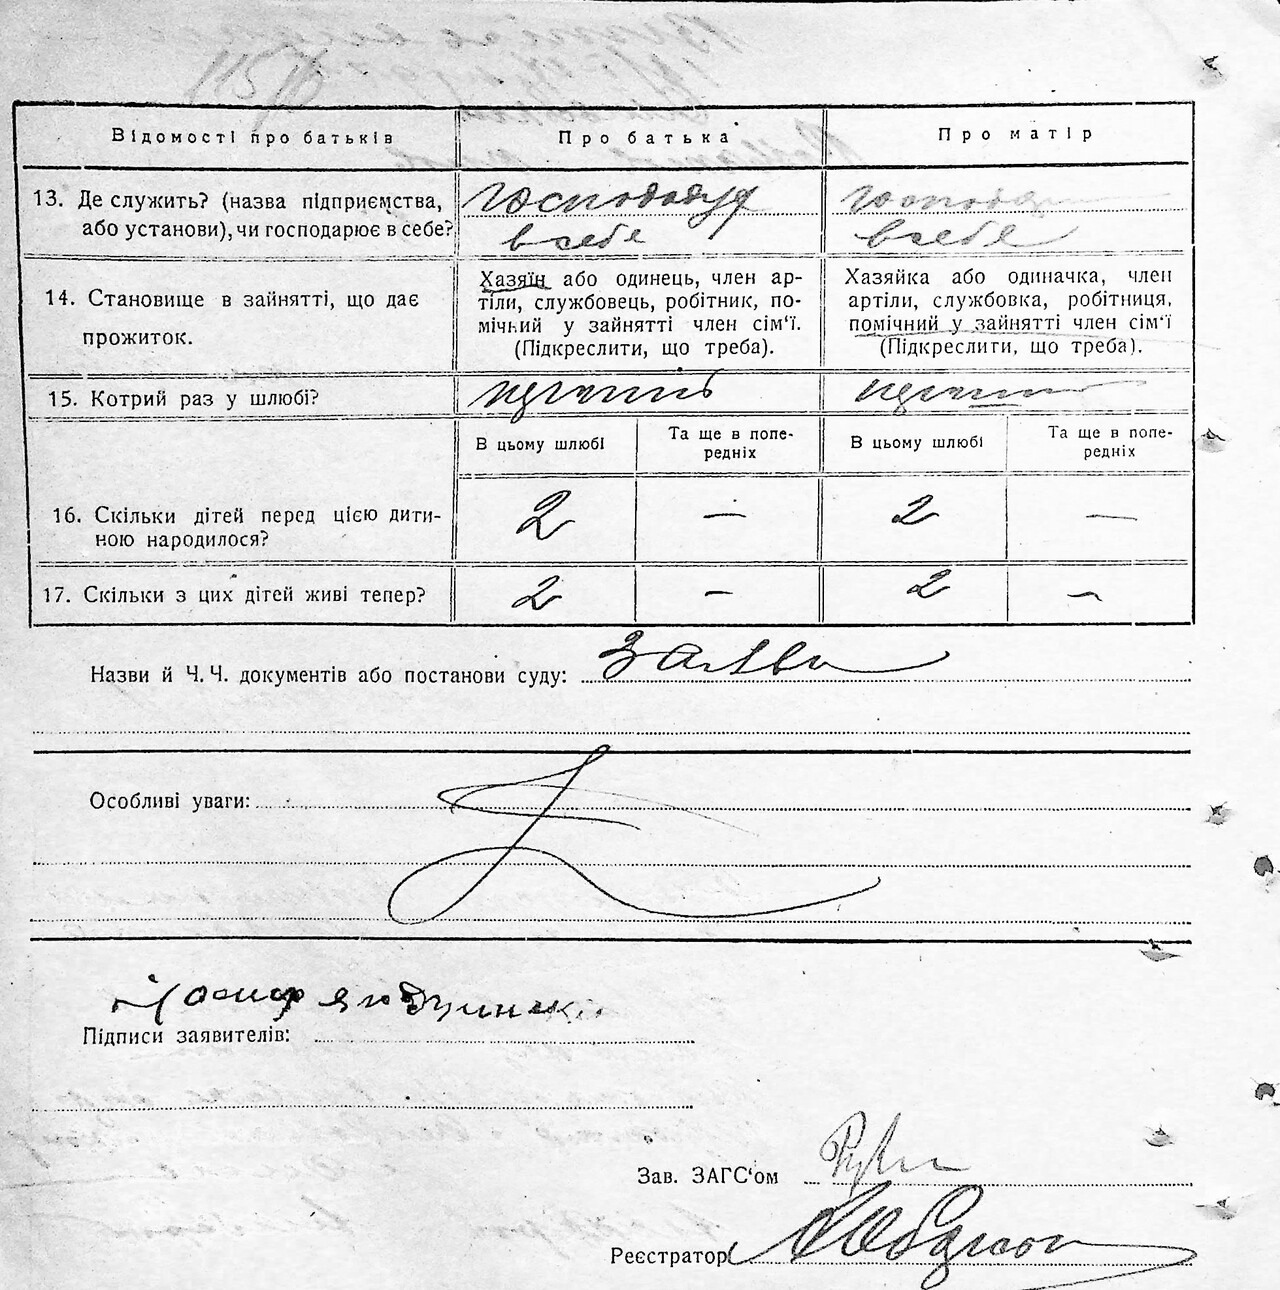 Відомості про батьків
Про батька
Про матір
13. Де служить? (назва підприємства, або установи), чи господарює в себе?
господарує
в себе
господарує
в себе
14. Становище в зайнятті, що дає прожиток.
Хазяїн або одинець, член ар-
тіли, службовець, робітник, по-
мічний у зайнятті член сім'ї.
(Підкреслити, що треба).
Хазяйка або одиначка, член
артіли, службовка, робітниця,
помічний у зайнятті член сім'ї
(Підкреслити, що треба).
15. Котрий раз у шлюбі?
В цьому шлюбі
Та ще в попе-
редніх
В цьому шлюбі
Та ще в попе-
редніх
16. Скільки дітей перед цією дити-
ною народилося?
2 — 2 —
17. Скільки з цих дітей живі тепер?
2 — 2 —
Назви й Ч. Ч. документів або постанови суду: заява
Особливі уваги:
Підписи заявителів:
Зав. ЗАГС'ом
Реєстратор